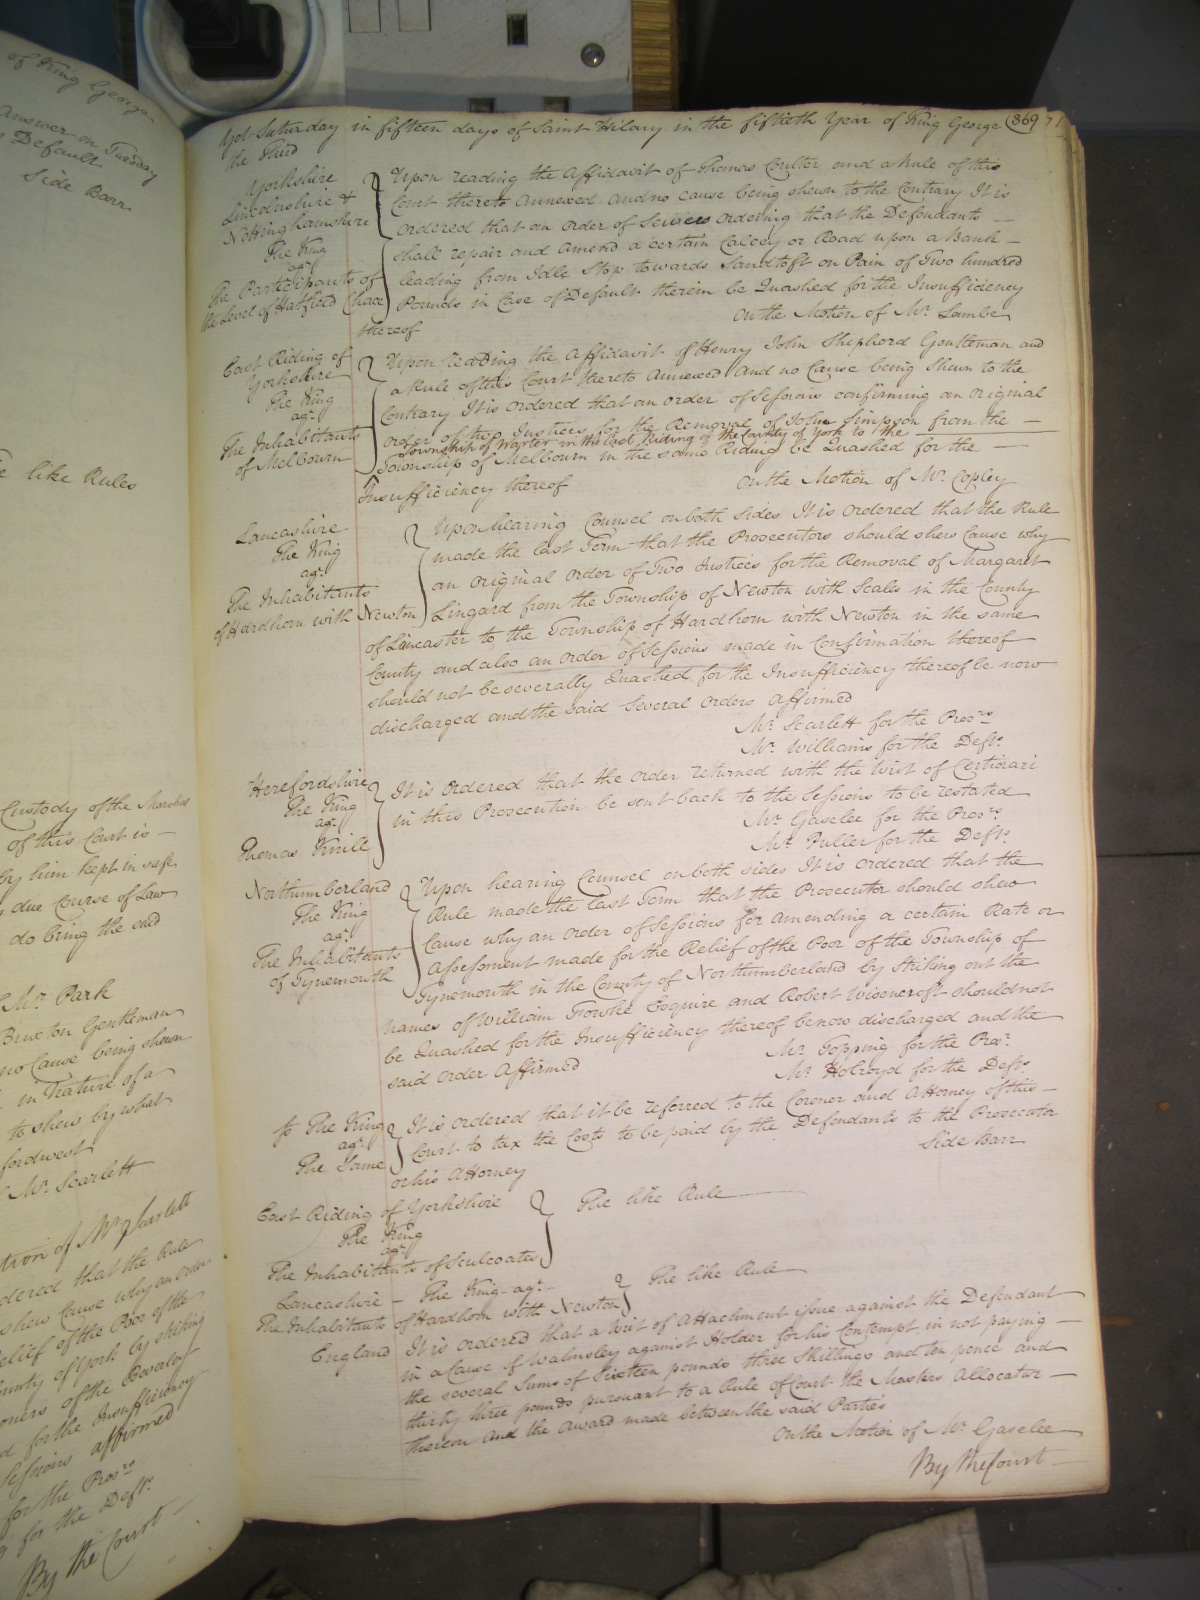 of King George
Answer on Tuesday
Default
Side Barr
like Rules
Custody of the Marshal
of this Court is —
by him kept in safe
due Course of Law
do bring the said
Mr. Park
Buxton Gentleman
no Cause being shewn
in Nature of a
to shew by what
fordwest
Mr. Scarlett
tion of Mr. Scarlett
dered that the Rule
shew Cause why an order
elief of the Poor of the
ounty of York by striking
oners of the
d for the Insufficiency
Sessions affirmed
for the Pros.rs
for the Defts.
By the Court —
Yet Saturday in fifteen days of Saint Hilary in the fiftieth Year of King George 369
the Third
Yorkshire
Lincolnshire &
Nottinghamshire
The King
agt.
The Participants of
the Level of Hatfield Chace
Upon reading the Affidavit of Thomas Coulter and a Rule of this
Court thereto Annexed and no cause being shewn to the Contrary It is
ordered that an order of Sewers ordering that the Defendants —
shall repair and amend a certain Calcey or Road upon a Bank —
leading from Idle Stop towards Sandtoft on Pain of Two hundred
Pounds in Case of Default therein be Quashed for the Insufficiency
thereof On the Motion of Mr. Lambe
East Riding of
Yorkshire
The King
agt.
The Inhabitants
of Melbourn
Upon reading the Affidavit of Henry John Shepherd Gentleman and
a Rule of this Court thereto Annexed and no Cause being Shewn to the
Contrary It is ordered that an order of Sessions confirming an Original
order of two Justices for the Removal of John Simpson from the —
Township of Warter in the East Riding of the County of York to the
Township of Melbourn in the same Riding be Quashed for the
Insufficiency thereof On the Motion of Mr. Copley
Lancashire
The King
agt.
The Inhabitants
of Hardhorn with Newton
Upon hearing Counsel on both sides It is ordered that the Rule
made the last Term that the Prosecutors should shew Cause why
an original order of Two Justices for the Removal of Margaret
Lingard from the Township of Newton with Scales in the County
of Lancaster to the Township of Hardhorn with Newton in the same
County and also an order of Sessions made in Confirmation thereof
should not be severally Quashed for the Insufficiency thereof be now
discharged and the said Several Orders affirmed
Mr. Scarlett for the Pros.rs
Mr. Williams for the Defts.
Herefordshire
The King
agt.
Thomas Knill
It is ordered that the order returned with the Writ of Certiorari
in this Prosecution be sent back to the Sessions to be restated
Mr. Gaselee for the Pros.rs
Mr. Puller for the Defts.
Northumberland
The King
agt.
The Inhabitants
of Tynemouth
Upon hearing Counsel on both sides It is ordered that the
Rule made the last Term that the Prosecutor should shew
Cause why an order of Sessions for amending a certain Rate or
assessment made for the Relief of the Poor of the Township of
Tynemouth in the County of Northumberland by striking out the
names of William Fowke Esquire and Robert Wisencroft should not
be Quashed for the Insufficiency thereof be now discharged and the
said order Affirmed Mr. Topping for the Prosr.
Mr. Holroyd for the Defts.
The King
agt.
The Same
It is ordered that it be referred to the Coroner and Attorney of this —
Court to tax the Costs to be paid by the Defendants to the Prosecutor
or his Attorney Side Barr
East Riding of Yorkshire
The King
agt.
The Inhabitants of Sculcoates
The like Rule
Lancashire — The King agt. —
The Inhabitants of Hardhorn with Newton
The like Rule
England
It is ordered that a Writ of Attachment issue against the Defendant
in a Cause of Walmsley against Holder for his Contempt in not paying —
the several Sums of Sixteen pounds three Shillings and ten pence and
thirty three pounds pursuant to a Rule of Court the Masters Allocatur —
thereon and the Award made between the said Parties
On the Motion of Mr. Gaselee
By the Court —